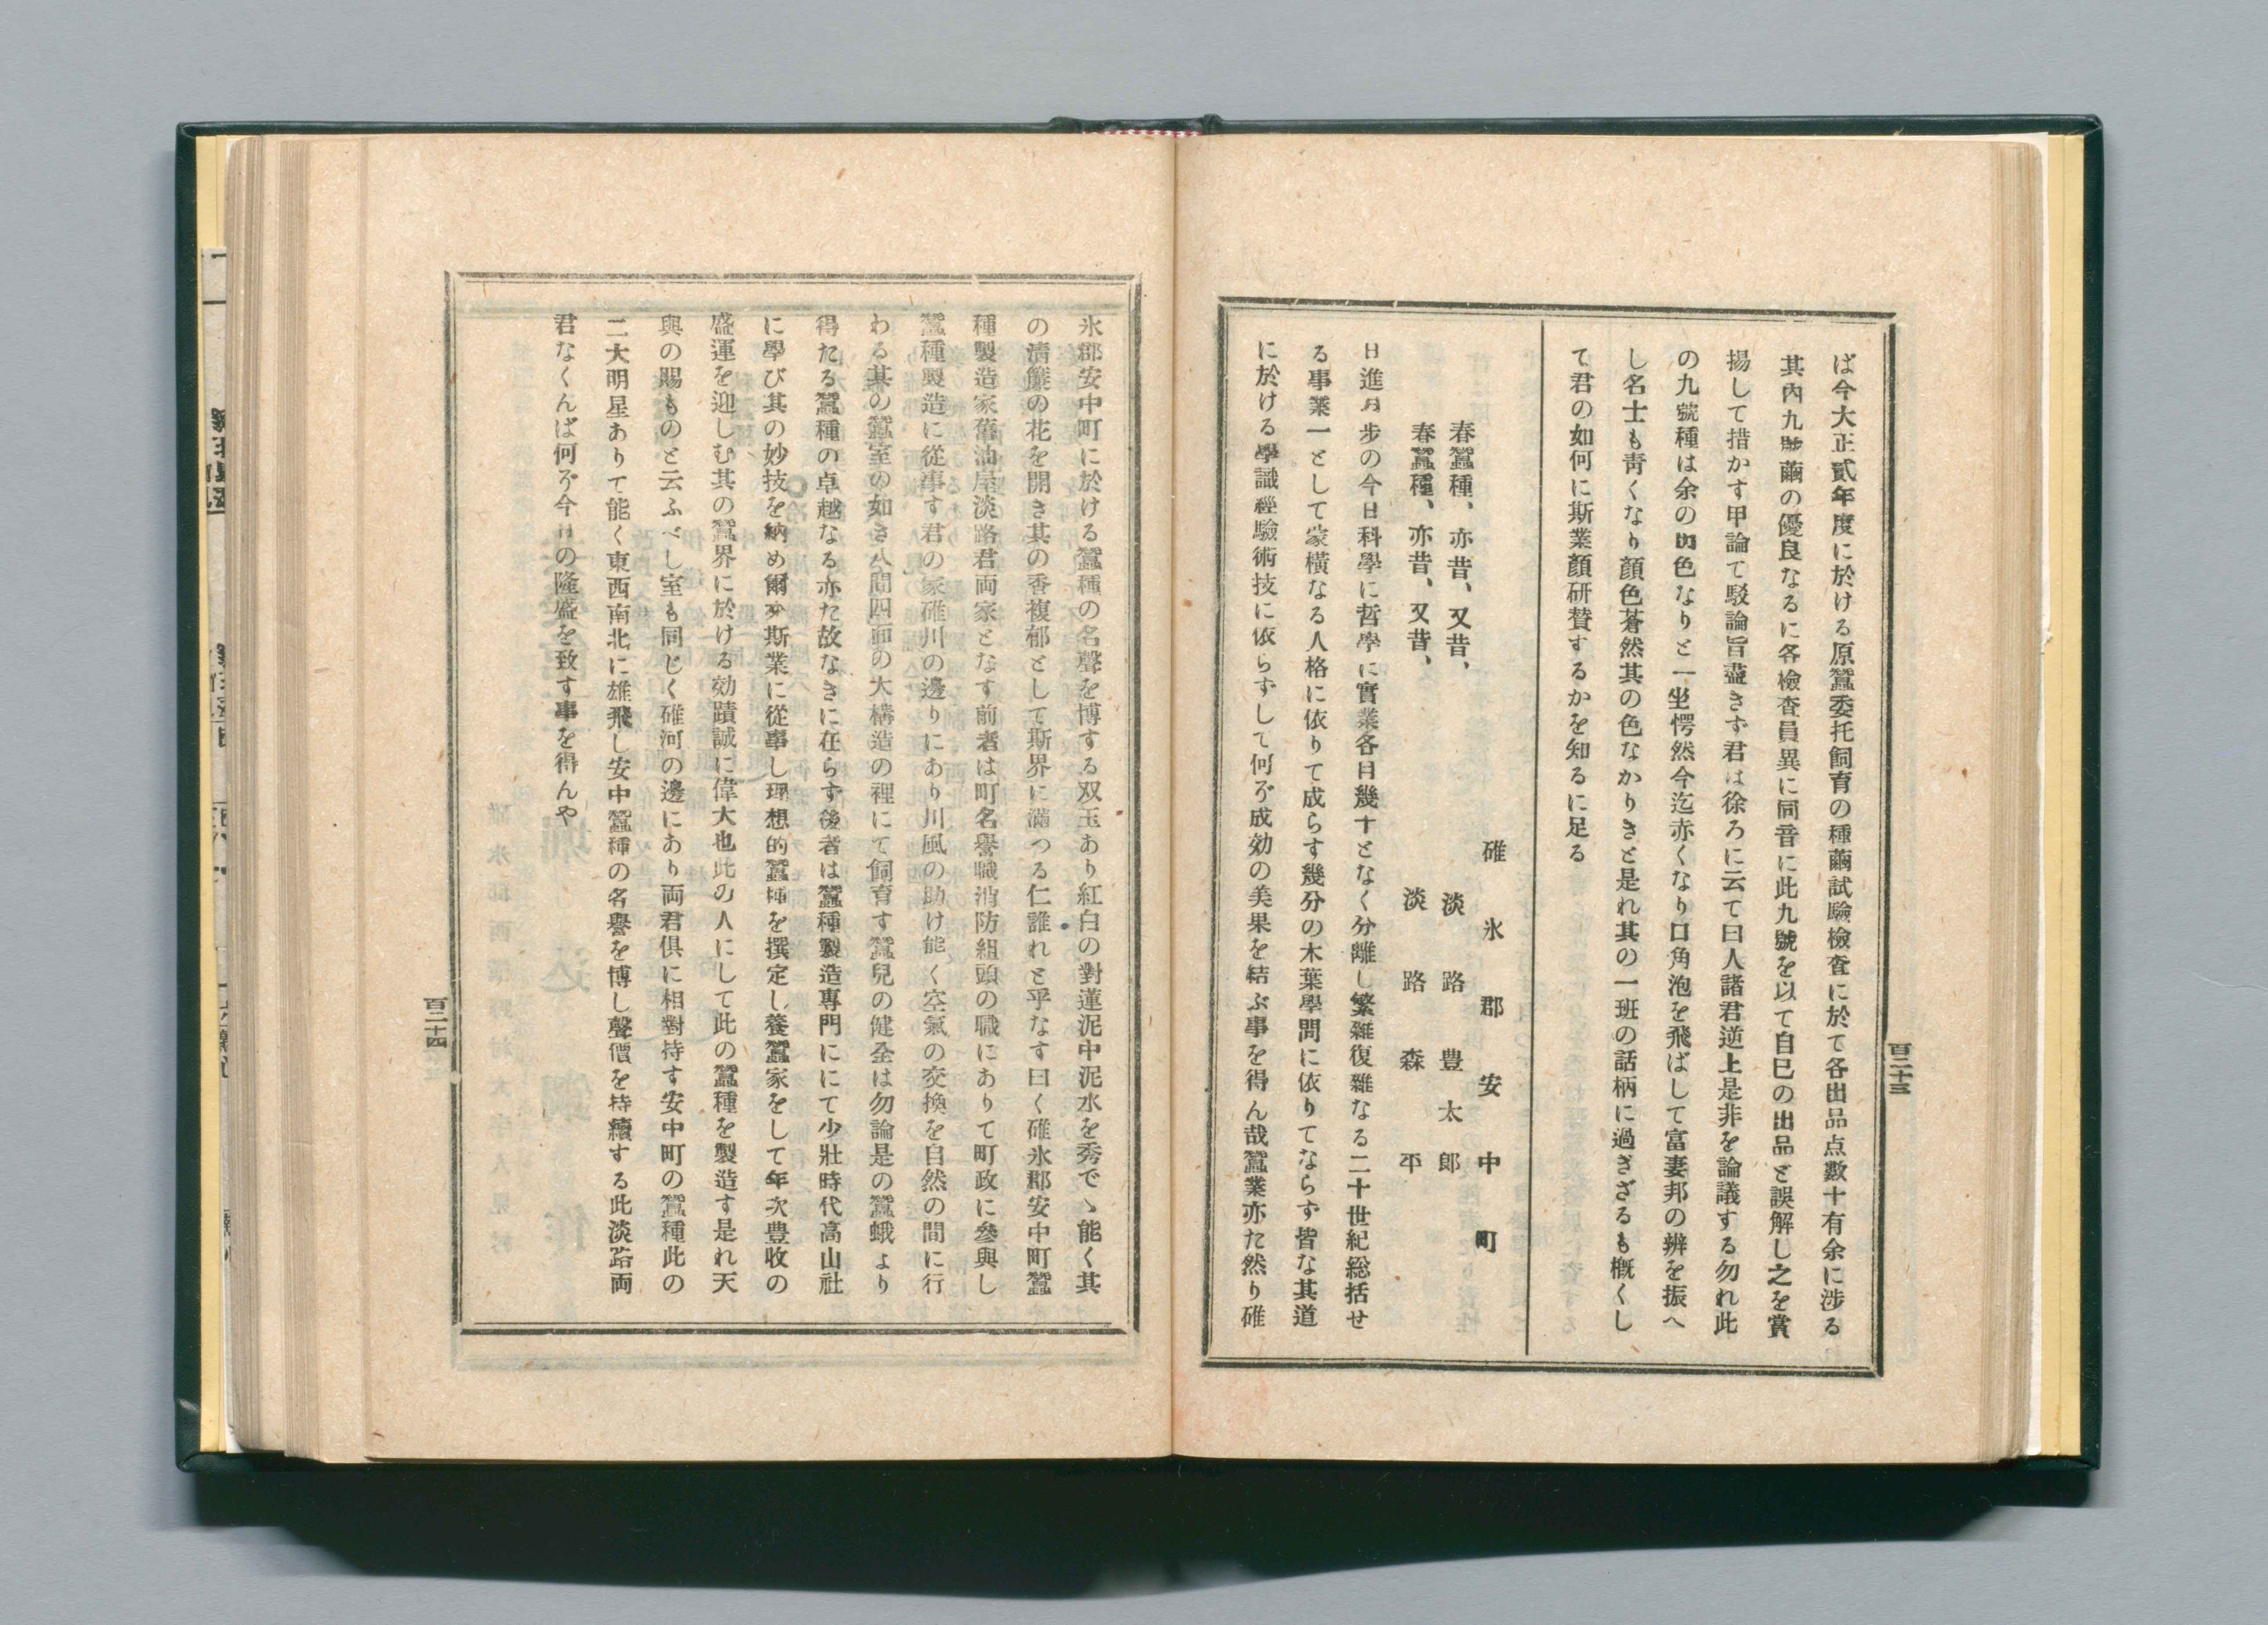 ば今大正貳年度に於ける原蠶委托飼育の種繭試驗檢査に於て各出品点數十有余に涉る
其內九號繭の優良なるに各檢査員異に同音に此九號を以て自巳の出品と誤解し之を賞
揚して措かす甲論て駁論旨盡きず君は徐ろに云て曰人諸君逆上是非を論議する勿れ此
の九號種は余の出色なりと一坐愕然今迄赤くなり口角泡を飛ばして富妻邦の辨を振へ
し名士も靑くなり顏色蒼然其の色なかりきと是れ其の一班の話柄に過ぎざるも槪くし
て君の如何に斯業顏研賛するかを知るに足る
碓氷郡安中町
春蠶種、亦昔、又昔、 淡路豊太郎
春蠶種、亦昔、又昔、 淡路森平
日進月步の今日科學に哲學に實業各日幾十となく分離し繁雜復雜なる二十世紀総括せ
る事業一として豪橫なる人格に依りて成らす幾分の木葉學問に依りてならず皆な其道
に於ける學識經驗術技に依らずして何ぞ成効の美果を結ぶ事を得ん哉蠶業亦た然り碓
百二十三
氷郡安中町に於ける蠶種の名聲を博する双玉あり紅白の對蓮泥中泥水を秀でゝ能く其
の淸簾の花を開き其の香複郁として斯界に滿つる仁誰れと乎なす曰く碓氷郡安中町蠶
種製造家舊油屋淡路君両家となす前者は町名譽職消防組頭の職にありて町政に參與し
蠶種製造に從事す君の家碓川の邊りにあり川風の助け能く空氣の交換を自然の間に行
わる其の蠶室の如き八間四面の大構造の裡にて飼育す蠶兒の健全は勿論是の蠶蛾より
得たる蠶種の卓越なる亦た故なきに在らず後者は蠶種製造專門ににて少壯時代高山社
に學び其の妙技を納め爾來斯業に從事し理想的蠶種を撰定し養蠶家をして年次豊收の
盛運を迎しむ其の蠶界に於ける効蹟誠に偉大也此の人にして此の蠶種を製造す是れ天
與の賜ものと云ふべし室も同じく碓河の邊にあり両君倶に相對持す安中町の蠶種此の
二大明星ありて能く東西南北に雄飛し安中蠶種の名譽を博し聲價を持續する此淡路両
君なくんば何ぞ今日の隆盛を致す事を得んや
百二十四